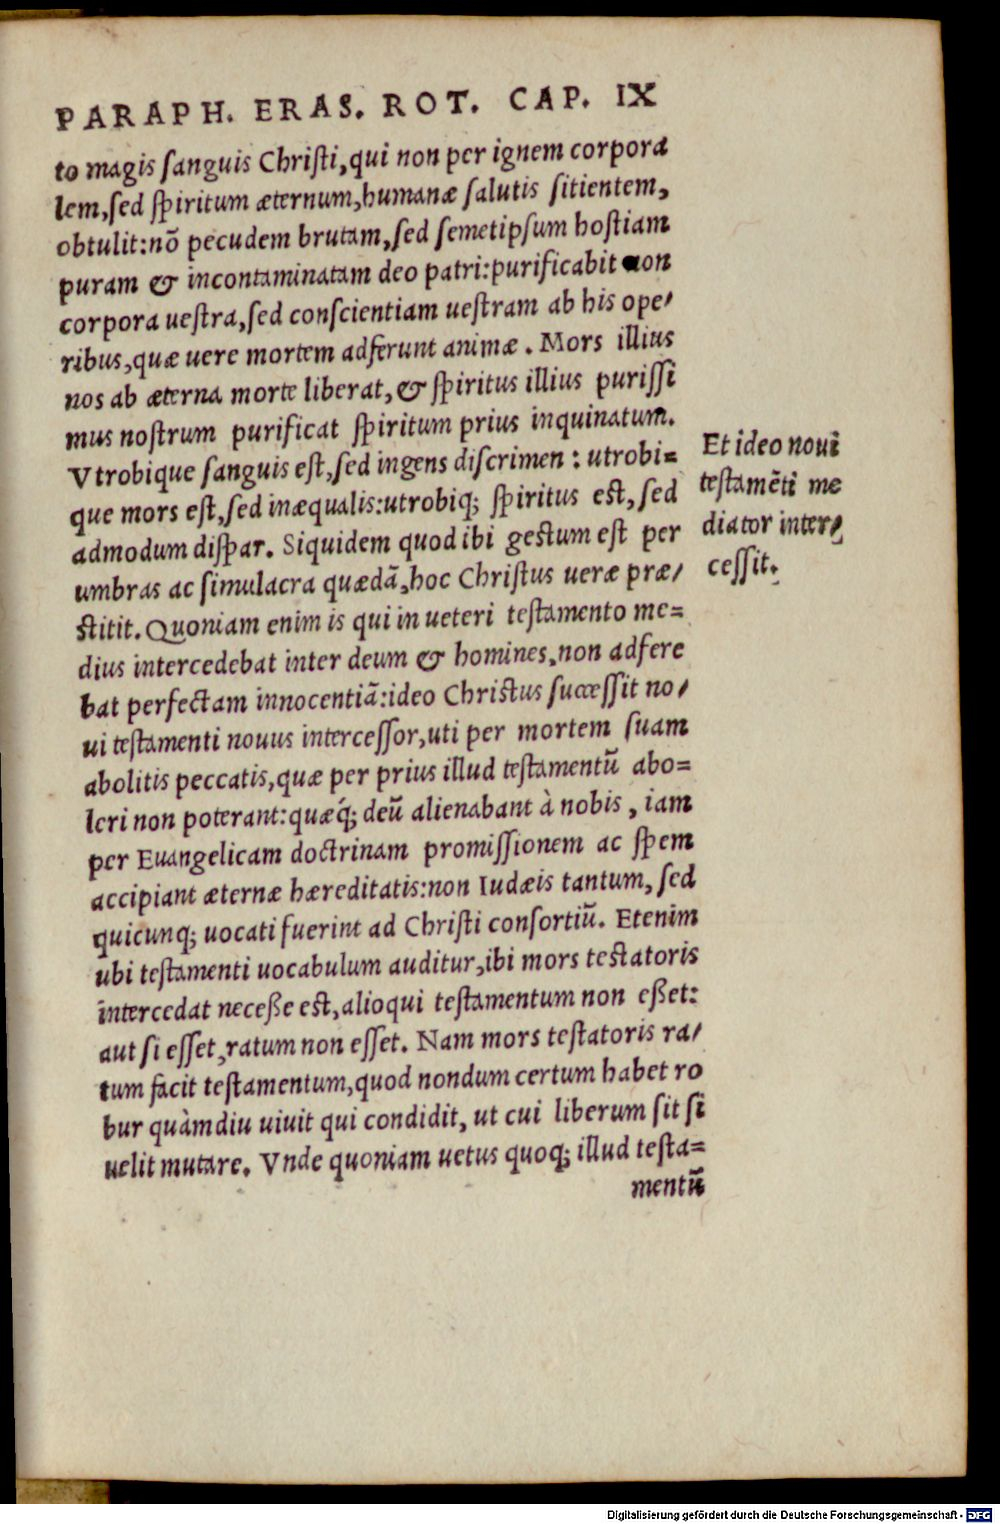 PARAPH. ERAS. ROT. CAP. IX
to magis sanguis Christi, qui non per ignem corpora
lem, sed spiritum æternum, humanæ salutis sitientem,
obtulit: nõ pecudem brutam, sed semetipsum hostiam
puram & incontaminatam deo patri: purificabit non
corpora uestra, sed conscientiam uestram ab his ope/
ribus, quæ uere mortem adferunt animæ. Mors illius
nos ab æterna morte liberat, & spiritus illius purissi
mus nostrum purificat spiritum prius inquinatum.
Vtrobique sanguis est, sed ingens discrimen: utrobi=
que mors est, sed inæqualis: utrobiq; spiritus est, sed
admodum dispar. Siquidem quod ibi gestum est per
umbras ac simulacra quædã, hoc Christus uere præ/
stitit. Quoniam enim is qui in ueteri testamento me=
dius intercedebat inter deum & homines, non adfere
bat perfectam innocentiã: ideo Christus successit no/
ui testamenti nouus intercessor, uti per mortem suam
abolitis peccatis, quæ per prius illud testamentũ abo=
leri non poterant: quæq́; deũ alienabant à nobis, iam
per Euangelicam doctrinam promissionem ac spem
accipiant æternæ hæreditatis: non Iudæis tantum, sed
quicunq; uocati fuerint ad Christi consortiũ. Etenim
ubi testamenti uocabulum auditur, ibi mors testatoris
intercedat neceße est, alioqui testamentum non eßet:
aut si esset, ratum non esset. Nam mors testatoris ra/
tum facit testamentum, quod nondum certum habet ro
bur quàmdiu uiuit qui condidit, ut cui liberum sit si
uelit mutare. Vnde quoniam uetus quoq; illud testa=
mentũ
Et ideo noui
testamẽti me
diator inter/
cessit.
Digitalisierung gefördert durch die Deutsche Forschungsgemeinschaft - DFG